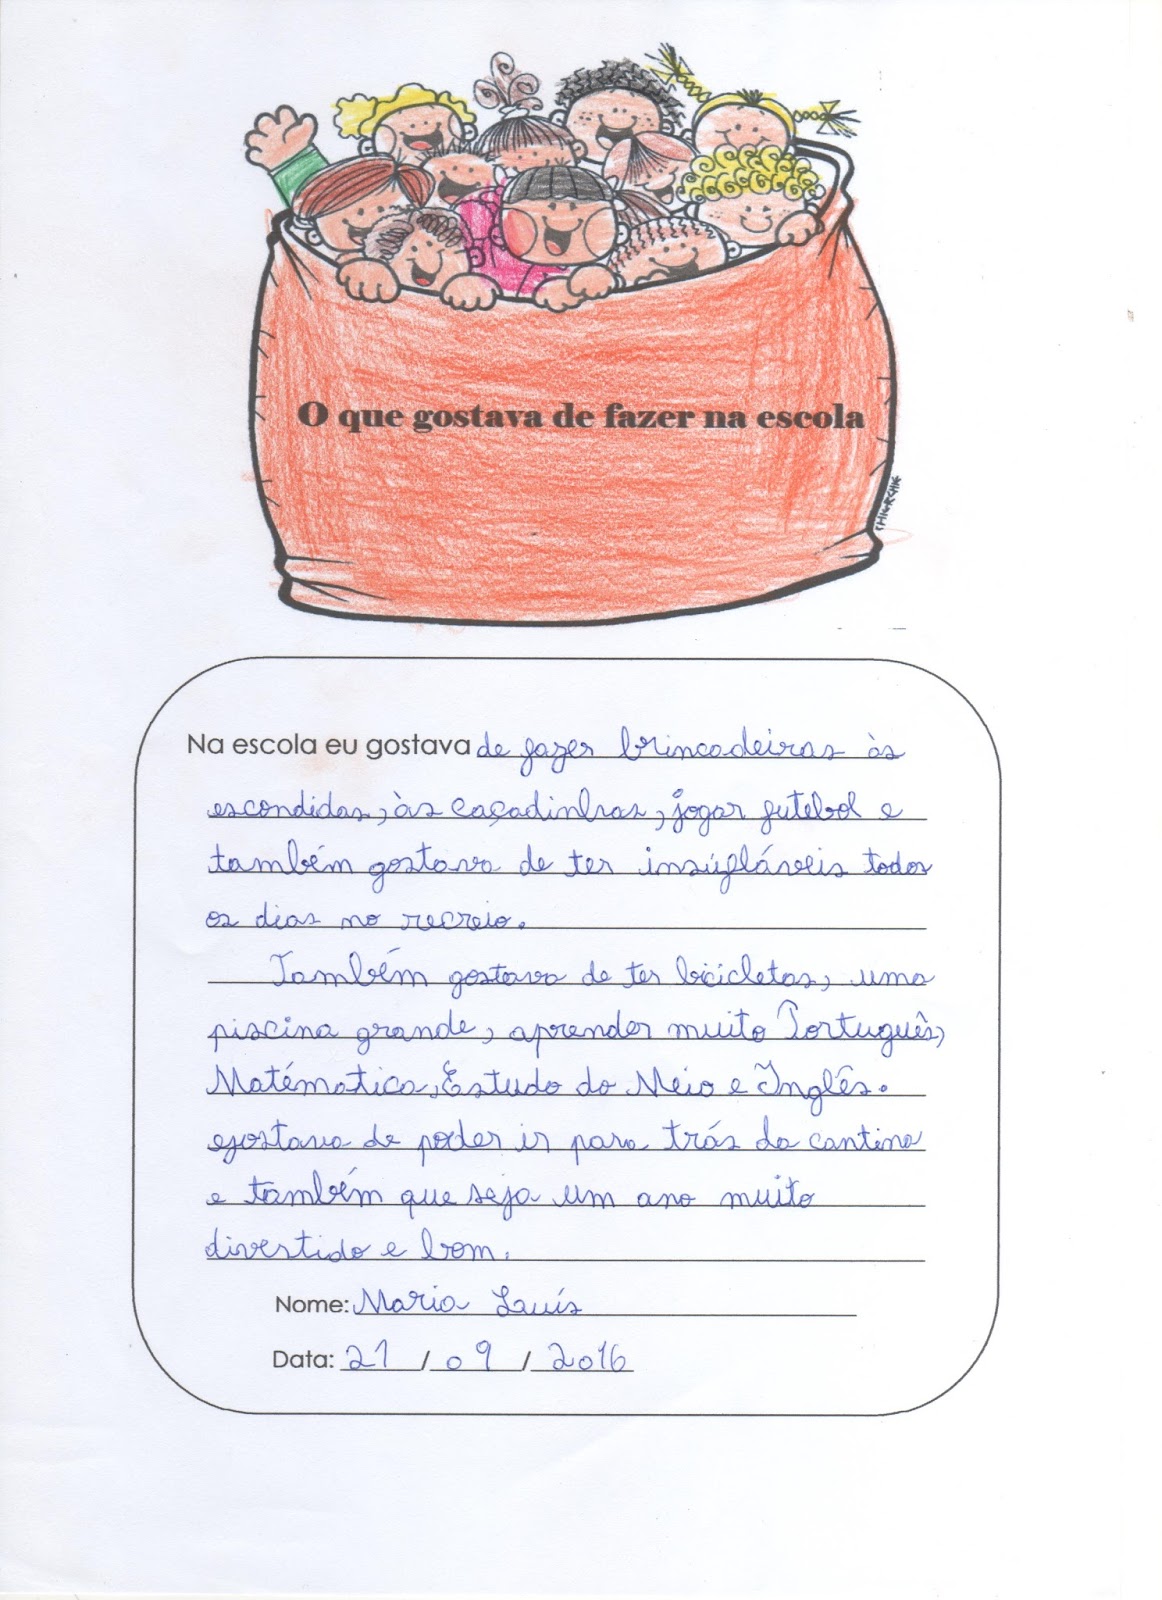 O que gostava de fazer na escola
Na escola eu gostava de fazer brincadeiras às
escondidas, às caçadinhas, jogar futebol e
também gostava de ter insúfláveis todos
os dias no recreio.
Também gostava de ter bicicletas, uma
piscina grande, aprender muito Português,
Matématica, Estudo do Meio e Inglês.
gostava de poder ir para trás da cantina
e também que seja um ano muito
divertido e bom.
Nome: Maria Luís
Data: 21 / 09 / 2016